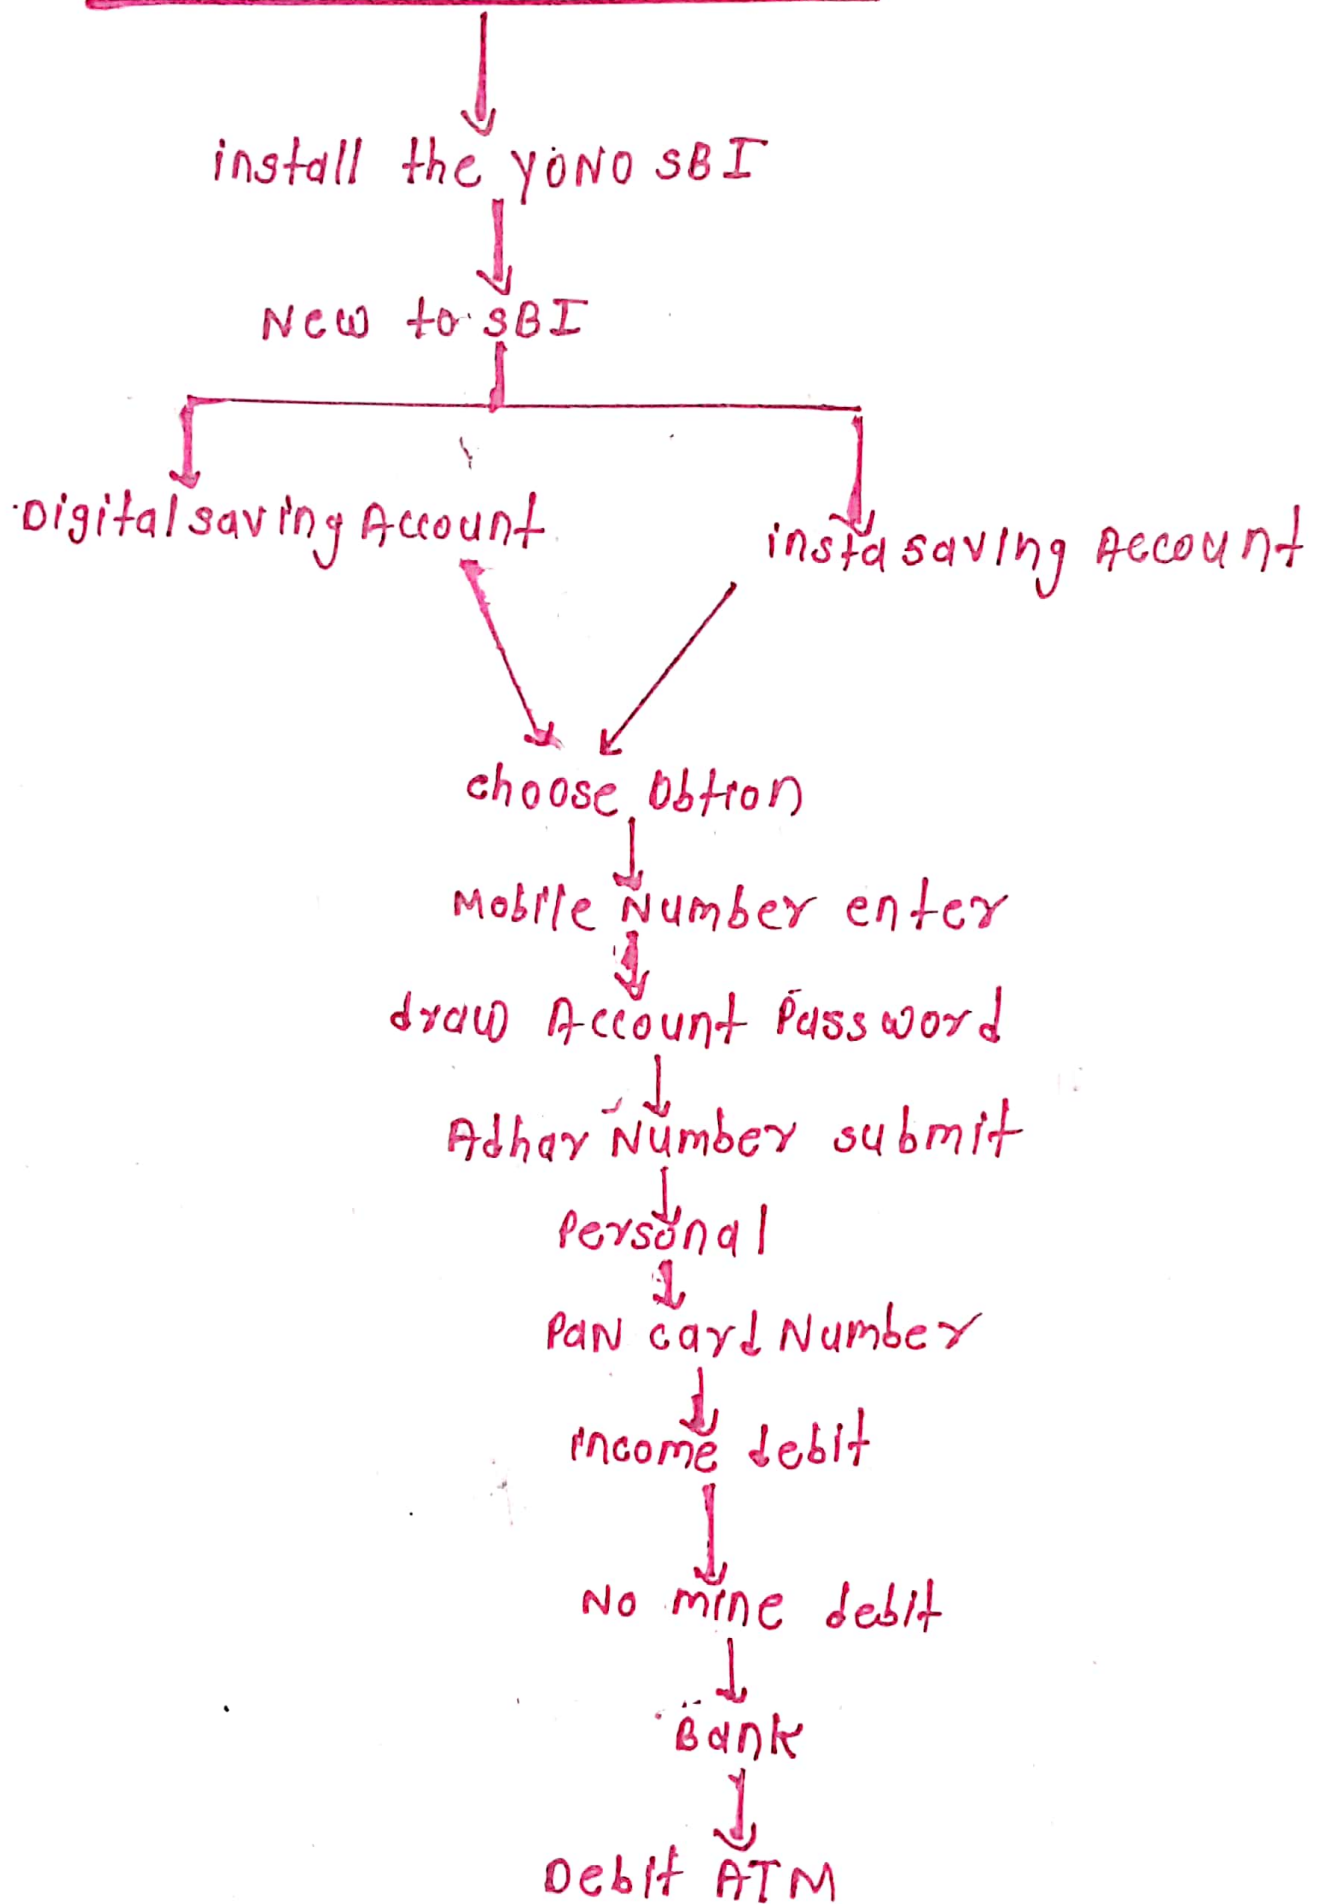 install the YONO SBI
New to SBI
Digital saving Account
insta saving Account
choose Obtion
Mobile Number enter
draw Account Password
Adhar Number submit
Personal
PaN card Number
income debit
No mine debit
Bank
Debit ATM